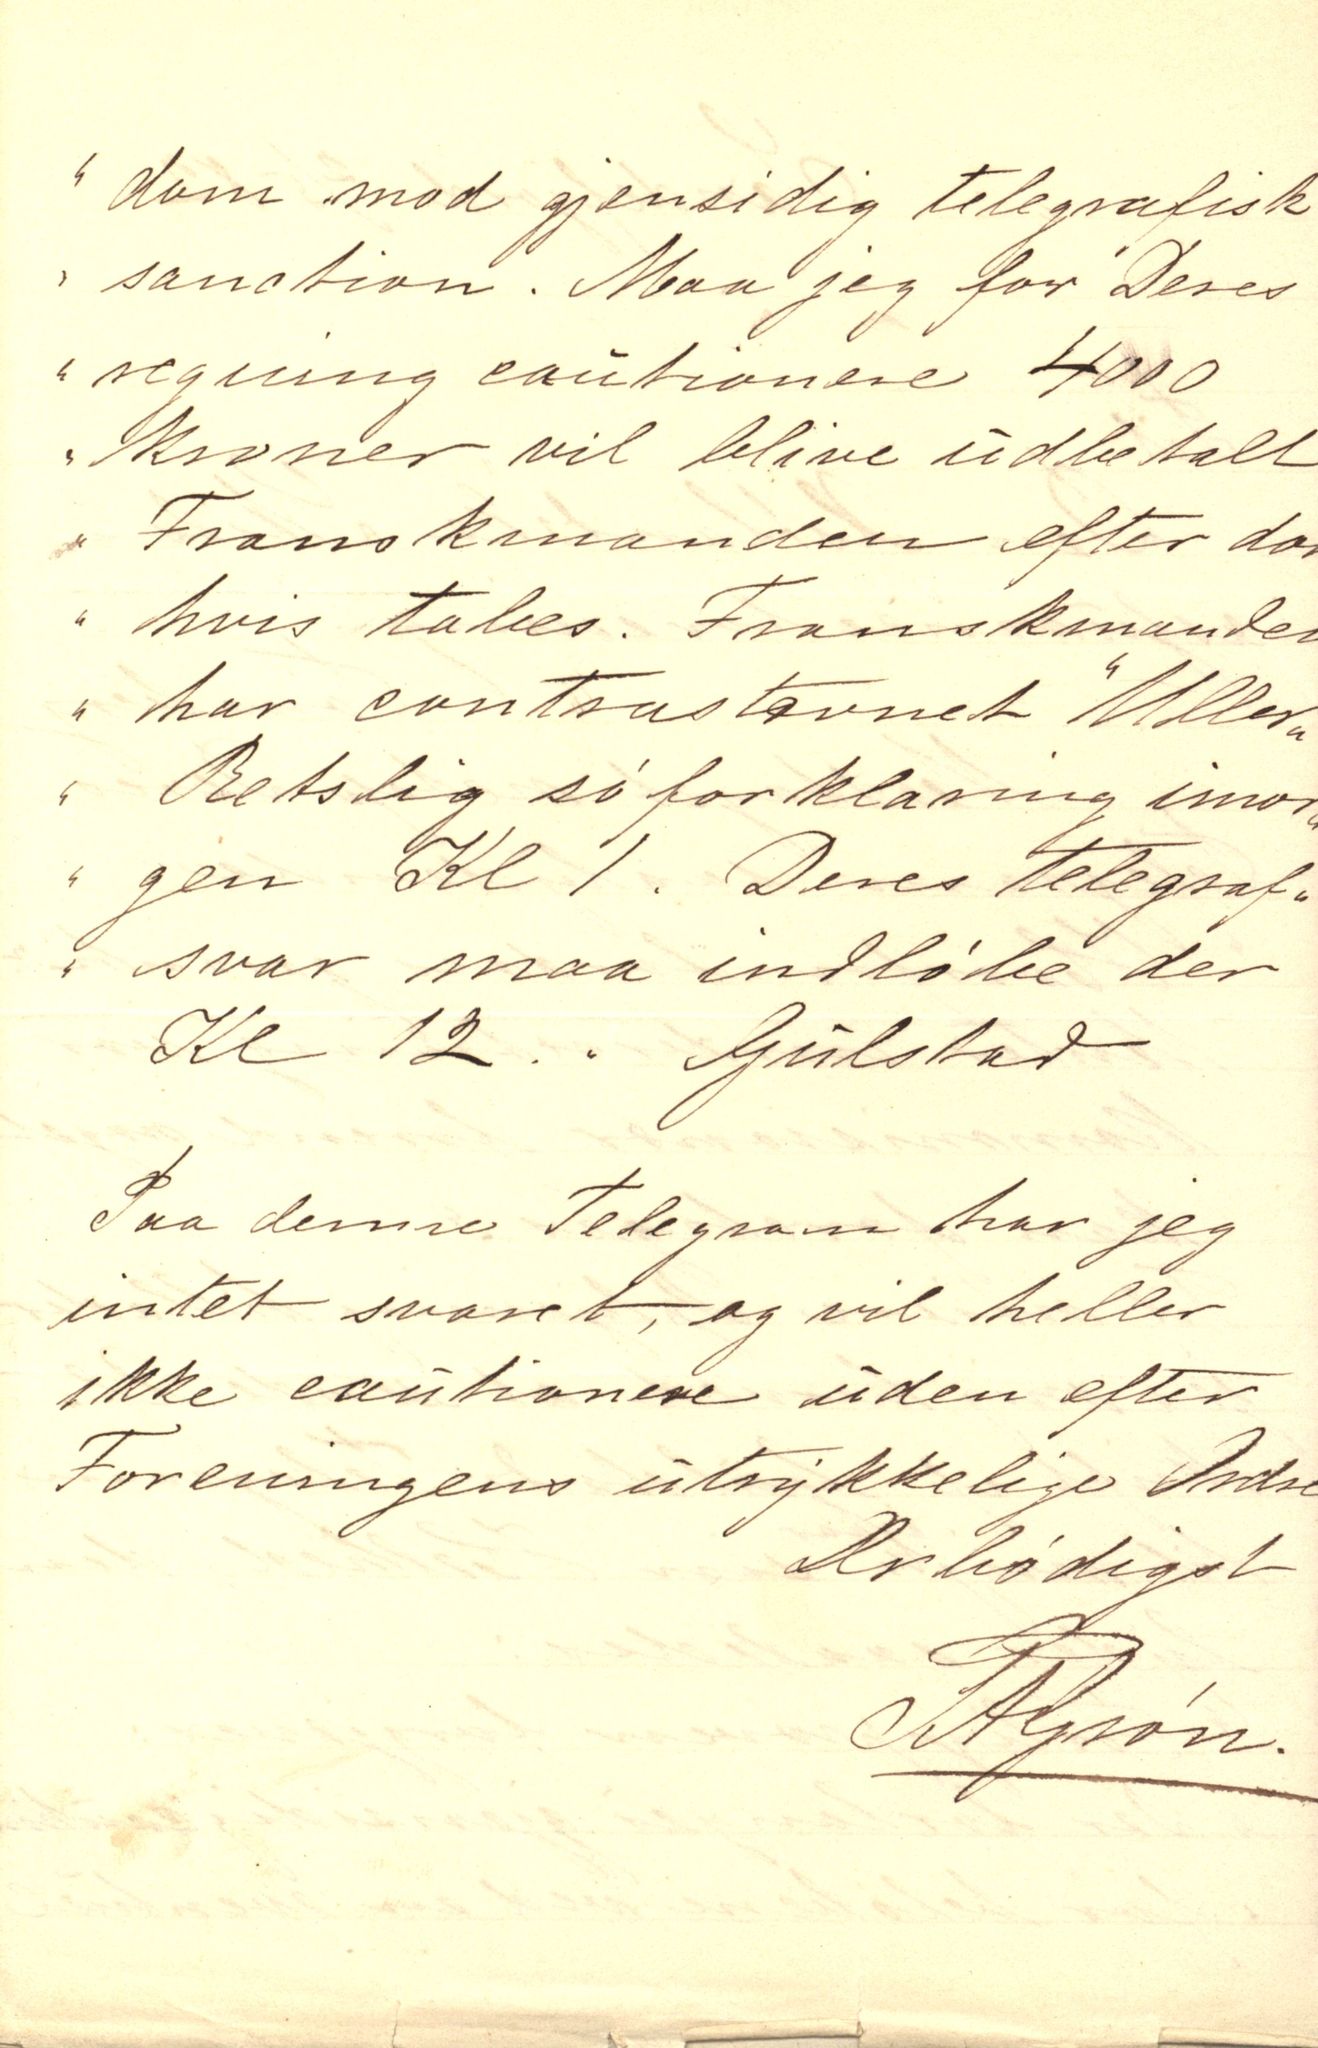 " dom mod gjensidig telegrafisk
" sanction. Maa jeg for Deres
" regning cautionere 4000
" kroner vil blive udbetalt
" Franskmanden efter dom
" hvis tabes. Franskmanden
" har contrastævnet "Uller"
" Retslig söforklaring imor
" gen Kl 1. Deres telegraf"
" svar maa indlöbe der
Kl 12. " Gulstad
Paa denne Telegram har jeg
intet svaret, og vil heller
ikke cautionere uden efter
Foreningens utrykkelige Ordre
Ærbödigst
Grön.